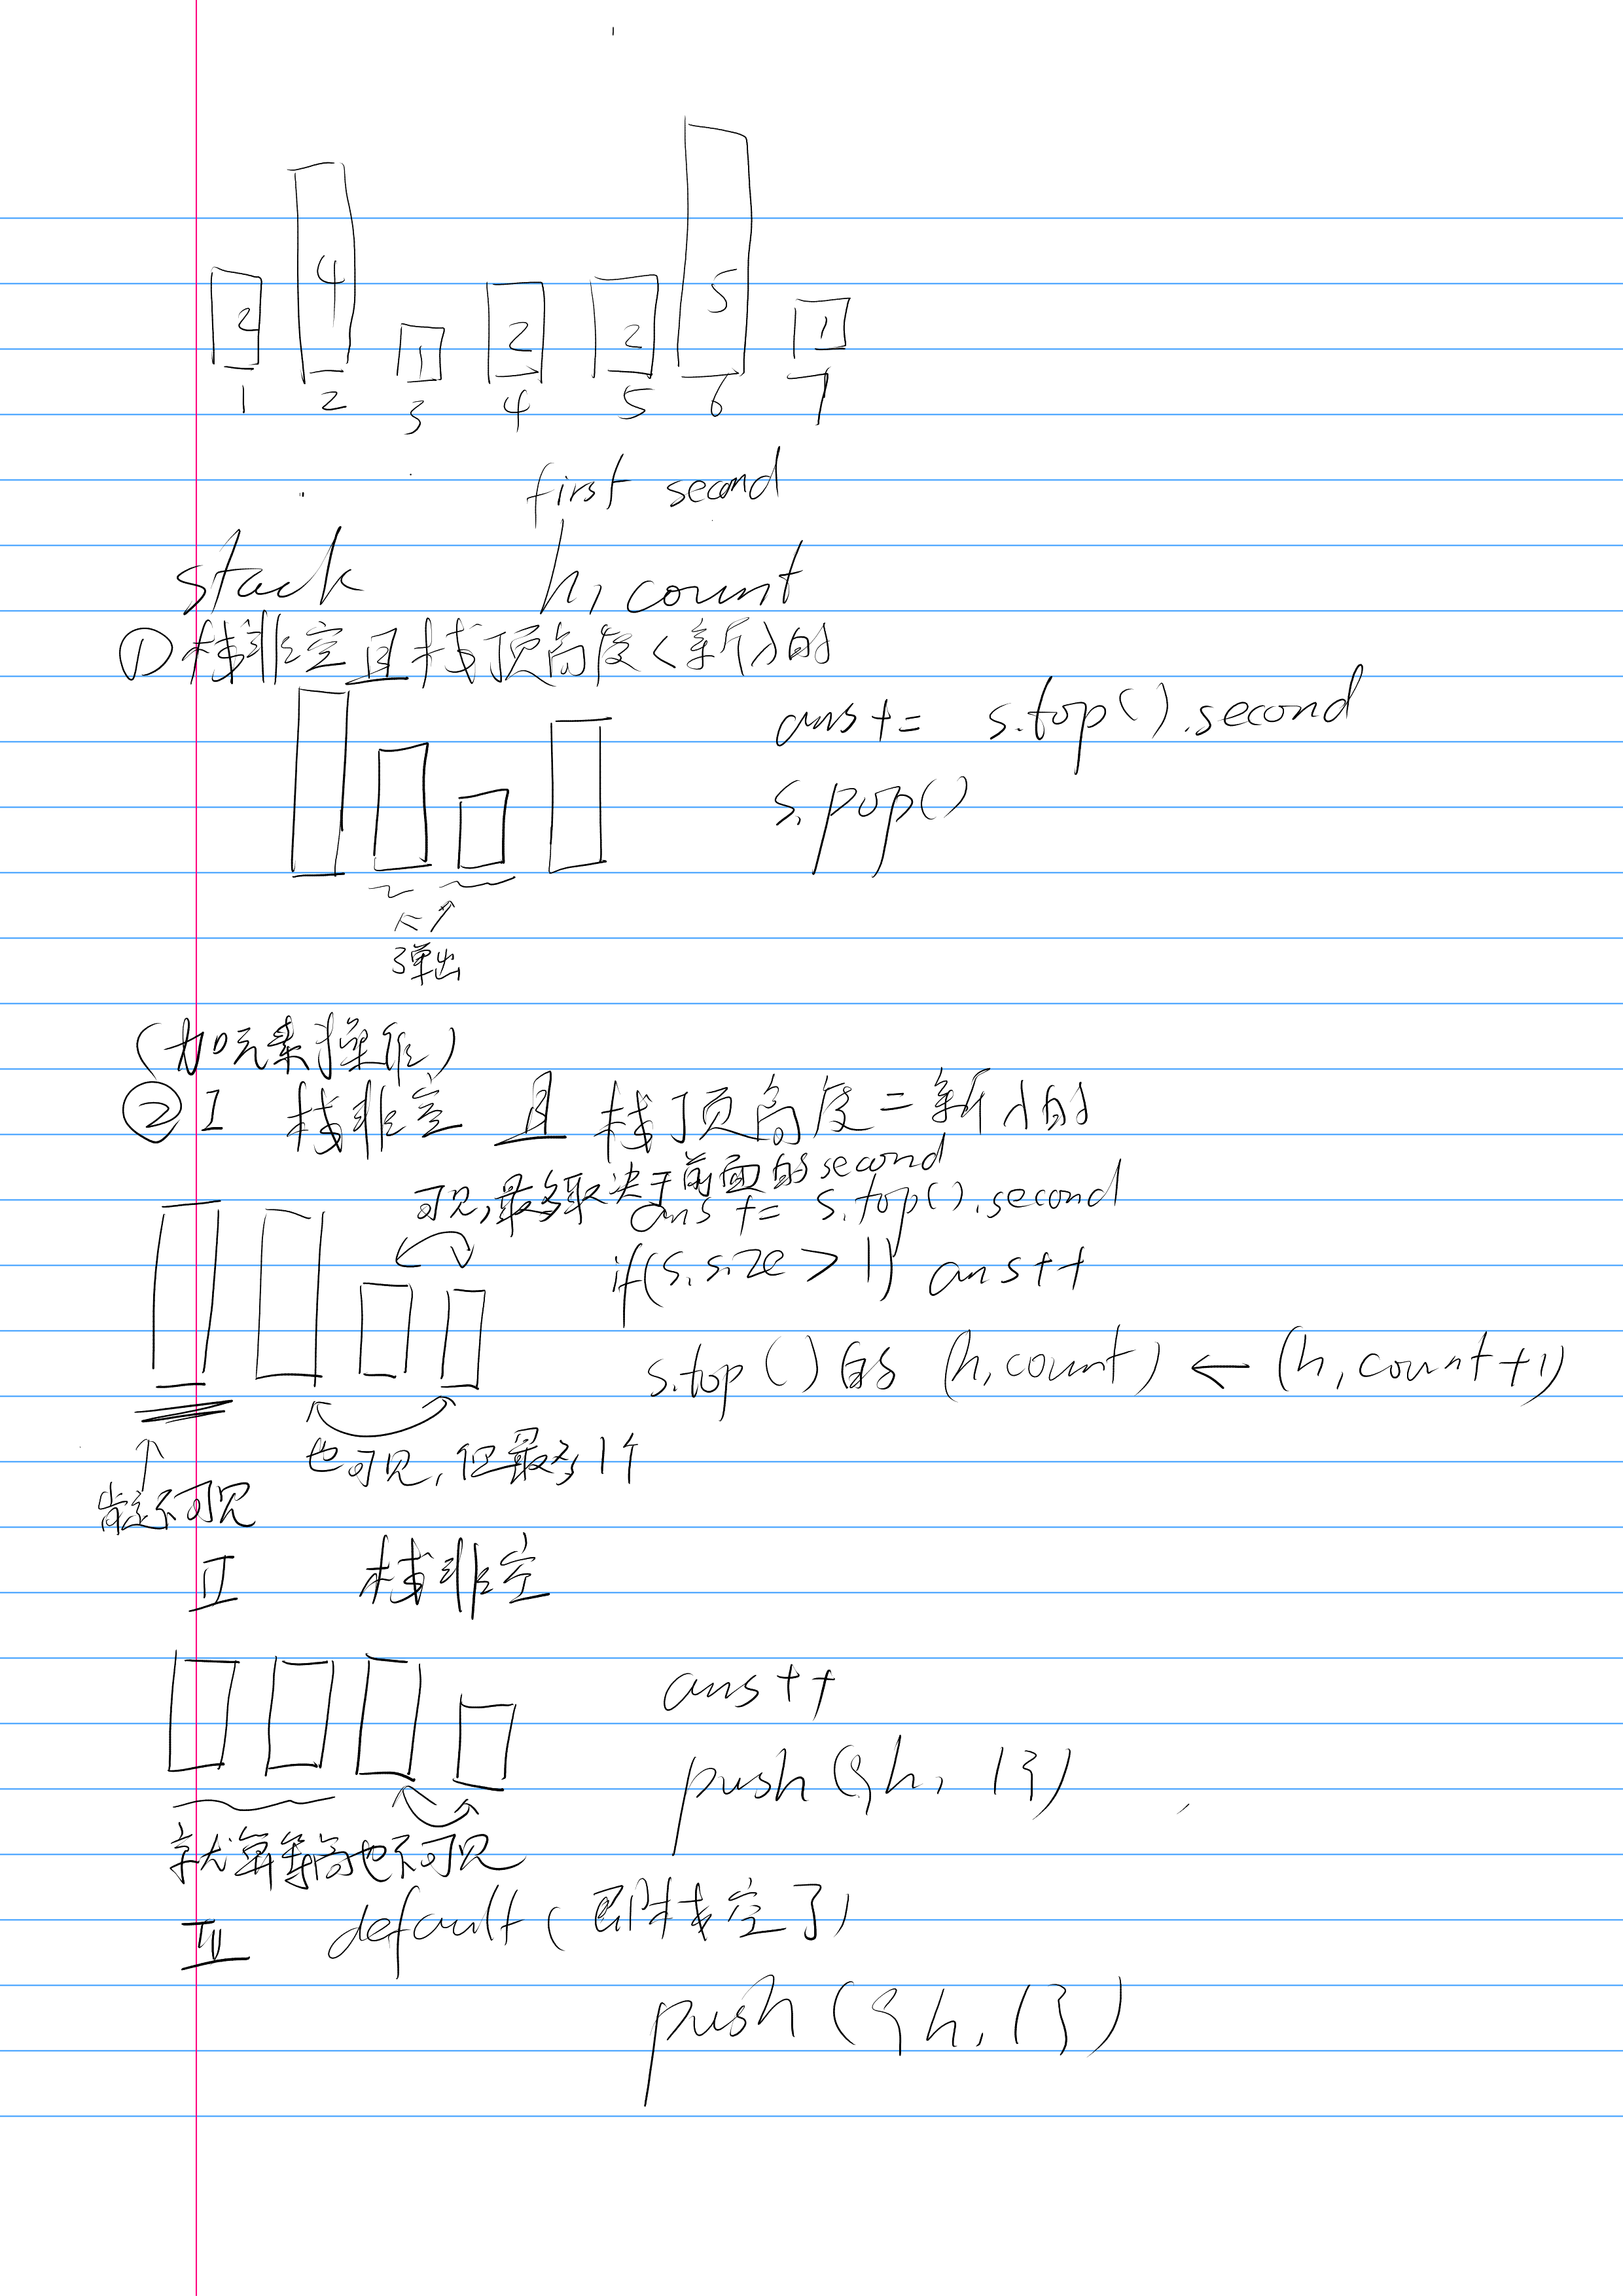 2 4 1 2 2 5 1
1 2 3 4 5 6 7
first second
stack h, count
① 栈非空且栈顶高度<新入的
ans += s.top().second
s.pop()
弹出
(加元素操作)
② I 栈非空 且 栈顶高度=新入的
可见,最多取决于前面的second
ans += s.top().second
if(s.size>1) ans++
s.top()的 (h,count) ← (h,count+1)
也可见,但最多1个
肯定不可见
II 栈非空
ans++
push({h, 1})
就算等高也不可见
III default(即栈空了)
push({h, 1})